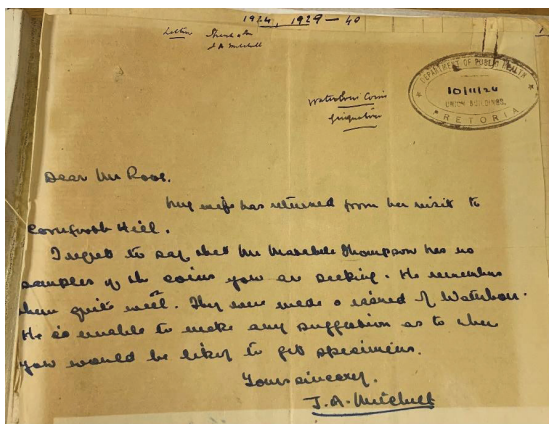 1924, 1929 - 40
Letter
J A Mitchell
DEPARTMENT OF PUBLIC HEALTH
10/11/24
UNION BUILDINGS.
PRETORIA
Waterboer Coins
Griqualand
Dear Mr Roos.
My wife has returned from her visit to
Hill.
I regret to say that Mr Thompson has no
samples of the coins you are seeking. He remembers
them quite well. They were made & issued by Waterboer.
He is unable to make any suggestion as to where
you would be likely to get specimens.
Yours sincerely.
J. A. Mitchell